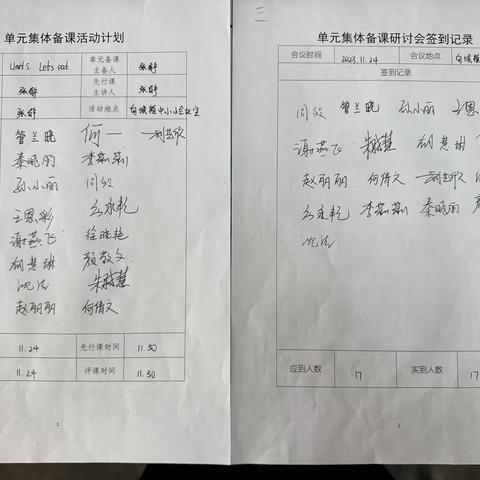 单元集体备课活动计划
Unit5 Let's eat
单元备课主备人
张舒
张舒
先行课主讲人
张舒
张舒
活动地点
管兰晓 何一
秦晓丽 李茹茹
孙小丽 闫放
王恩彩
谢燕飞 徐晓艳
胡慧琳 颜敬文
沈洁 朱敏慧
赵丽丽 何倩文
11.24 先行课时间 11.30
11.24 评课时间 11.30
1
三
单元集体备课研讨会签到记录
会议时间 2023.11.24 会议地点
签到记录
闫放 管兰晓 孙小丽 王恩
谢燕飞 朱敏慧 胡慧琳
赵丽丽 何倩文
李茹茹 秦晓丽
沈洁
应到人数 17 实到人数 17
2